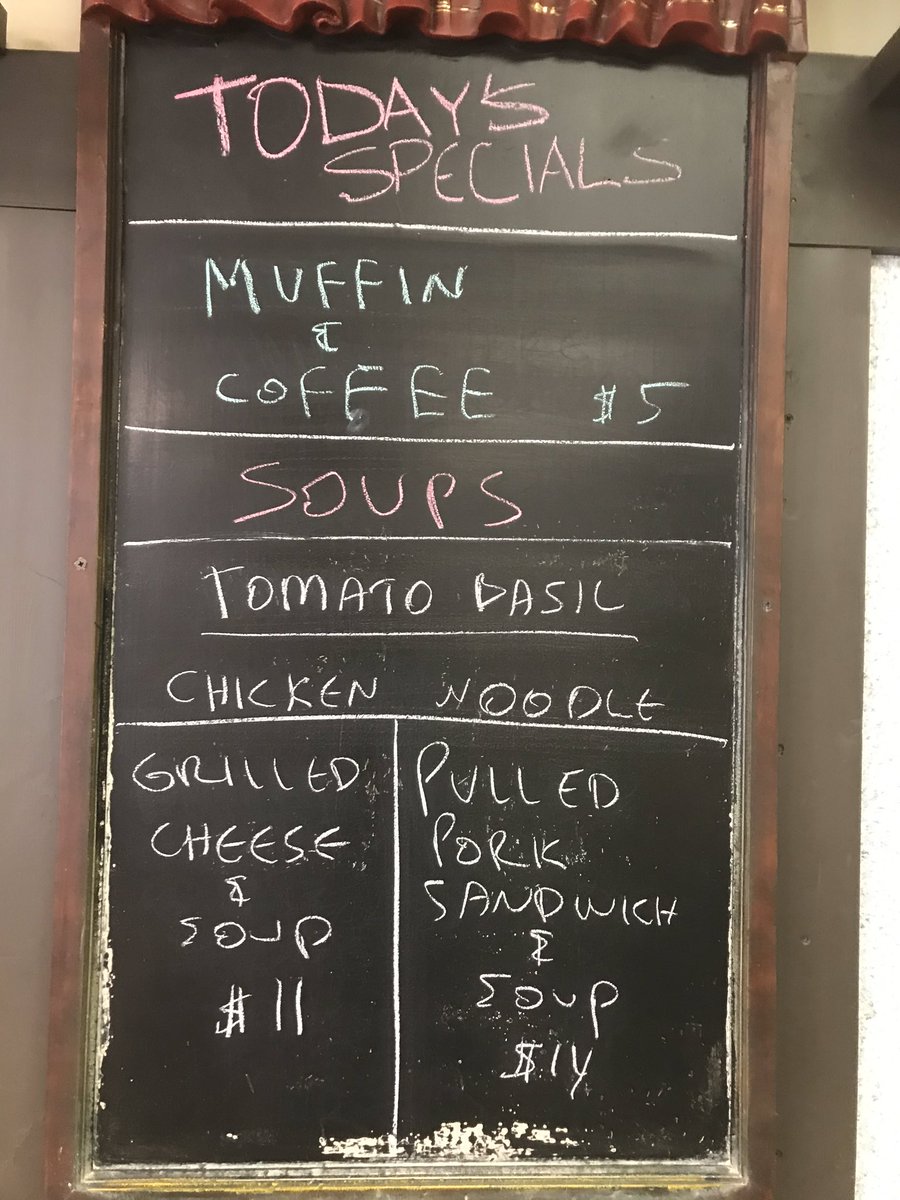 TODAY'S
SPECIALS
MUFFIN
&
COFFEE $5
SOUPS
TOMATO BASIL
CHICKEN NOODLE
GRILLED
CHEESE
&
SOUP
$11
PULLED
PORK
SANDWICH
&
SOUP
$14